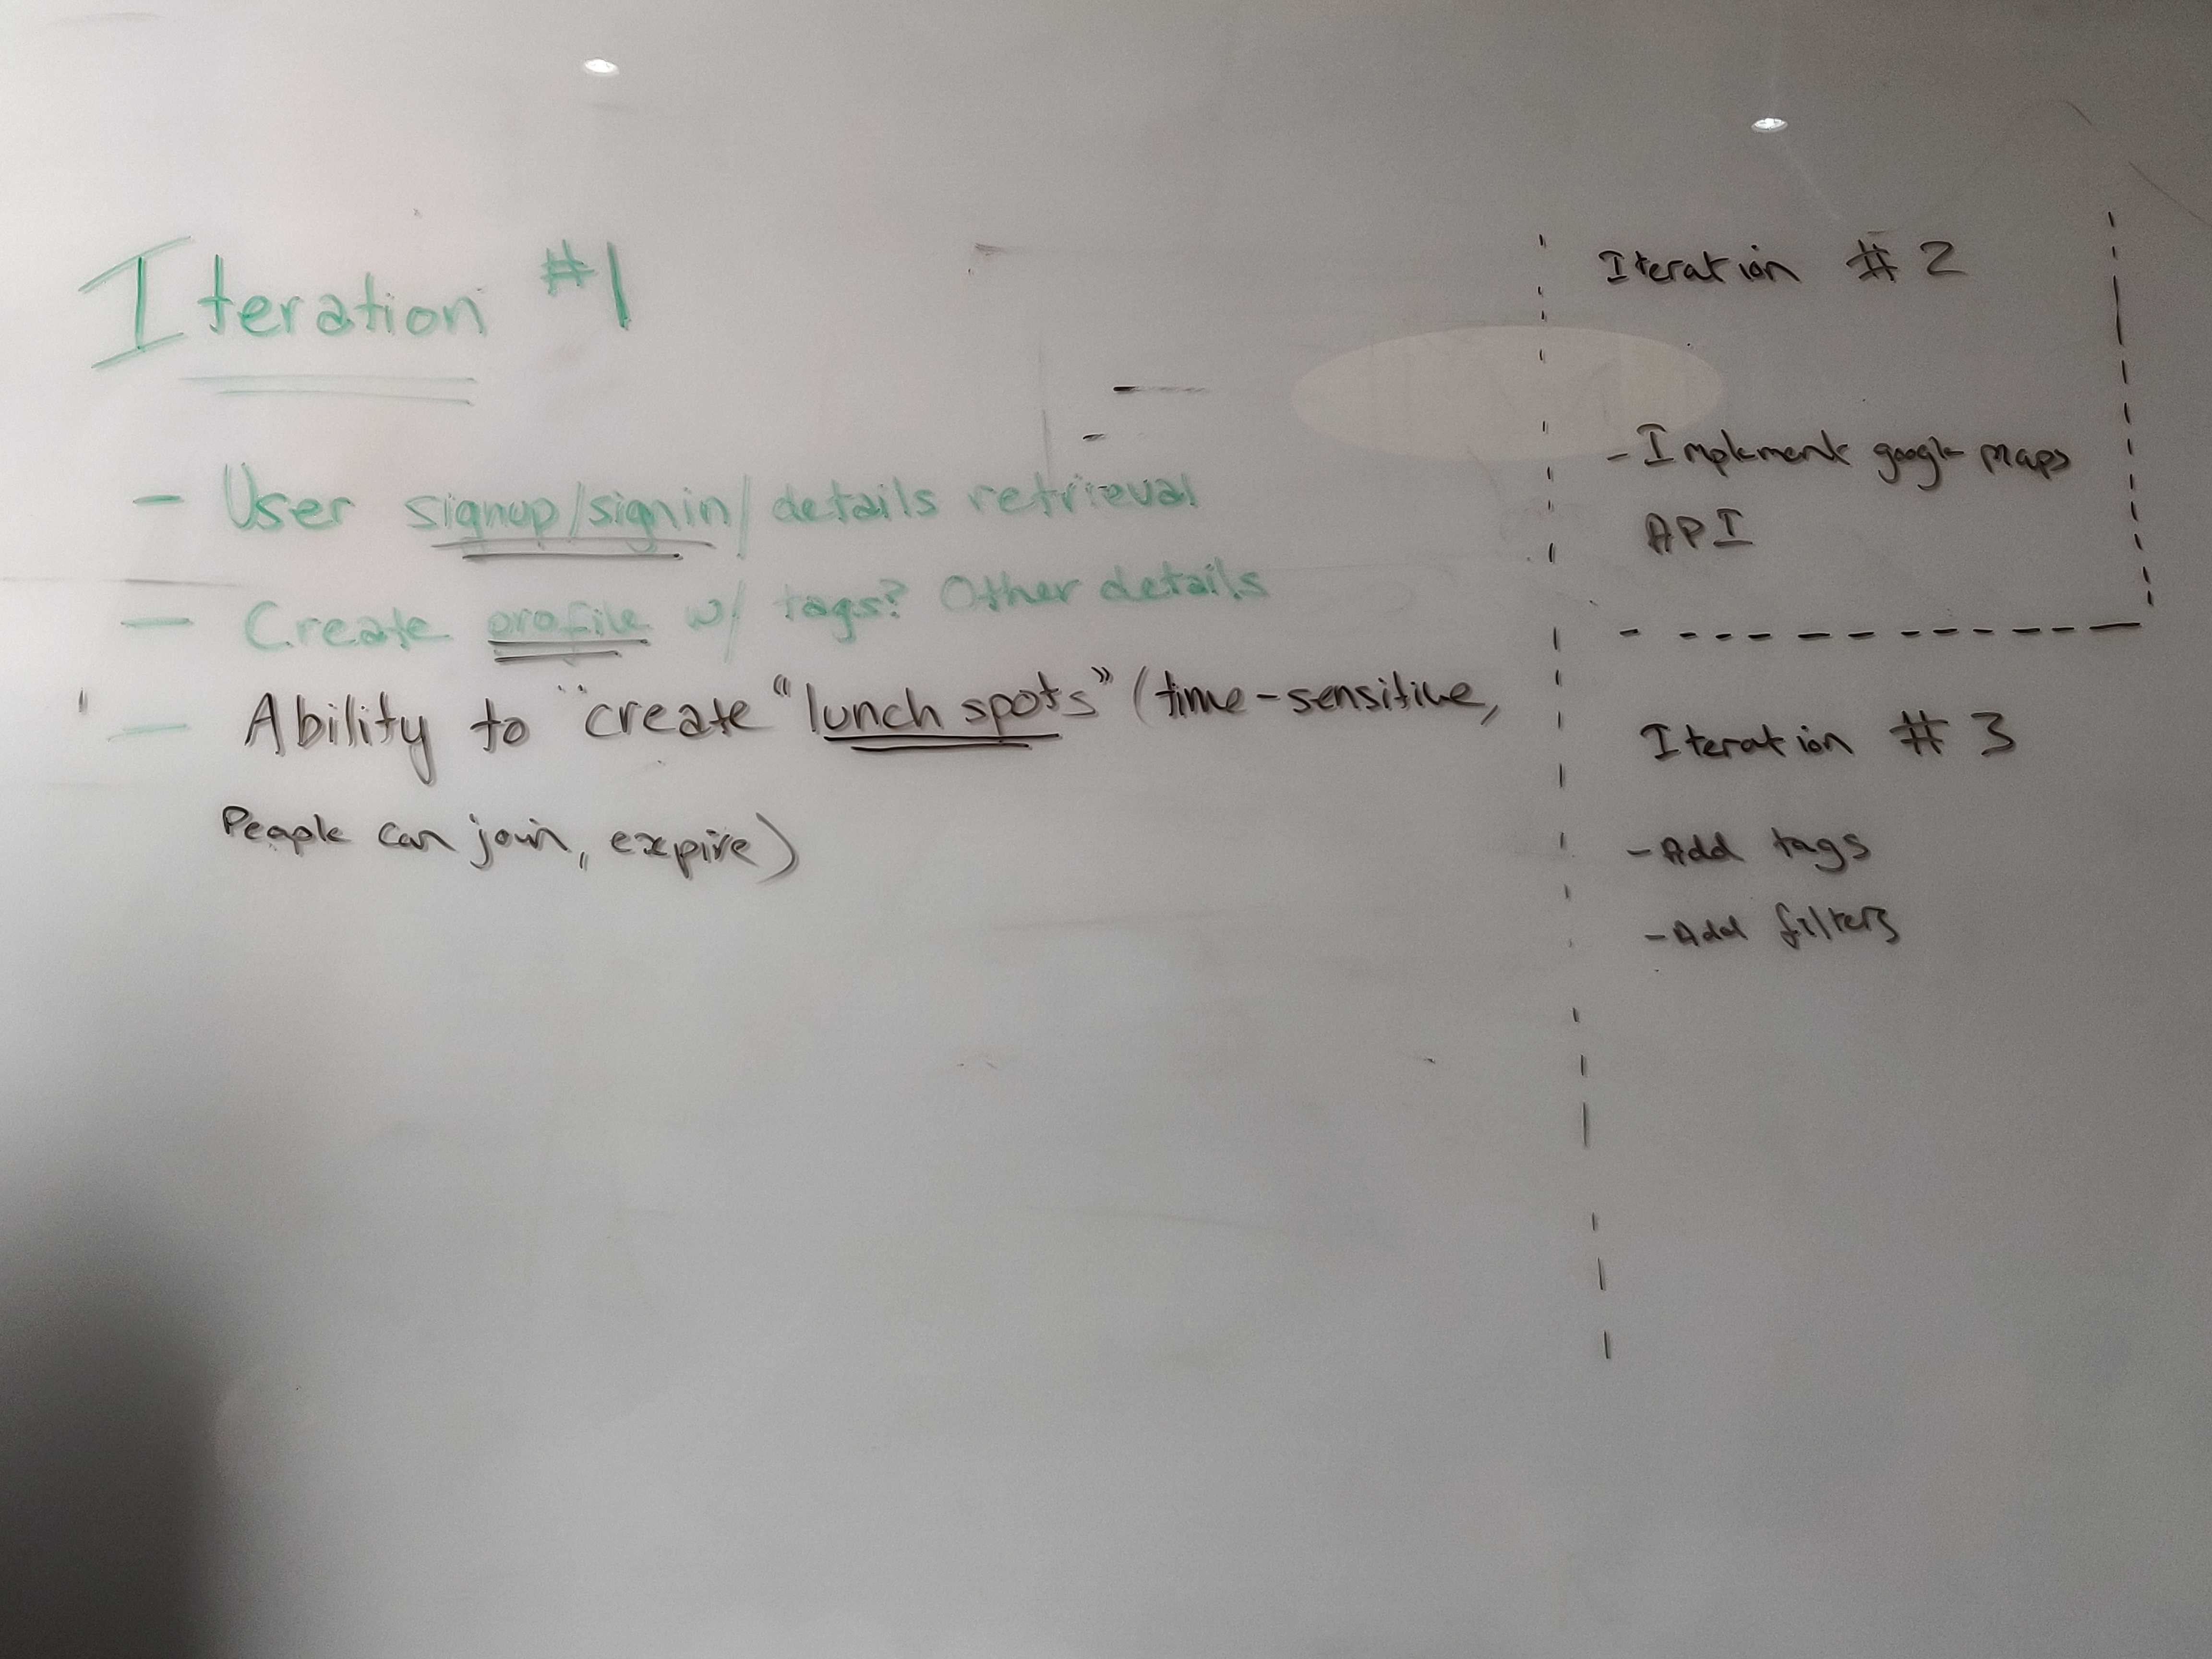 Iteration #1
- User signup/signin/ details retrieval
- Create profile w/ tags? Other details
- Ability to create "lunch spots" (time-sensitive,
People can join, expire)
Iteration #2
- Implement google maps
API
Iteration #3
- Add tags
- Add filters